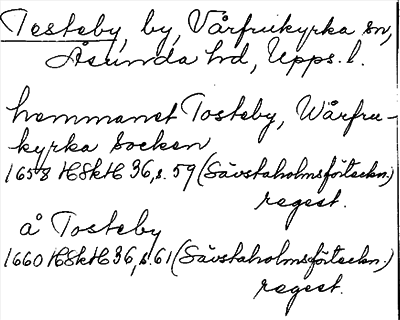 Tosteby, by, Vårfrukyrka sn,
Åsunda hd, Upps. l.
hemmanet Tosteby, Wårfru-
kyrka Socken
1658 HSkH 36, s. 59 (Sävstaholmsförteckn.)
regest.
å Tosteby
1660 HSkH 36, s. 61 (Sävstaholmsförteckn.)
regest.